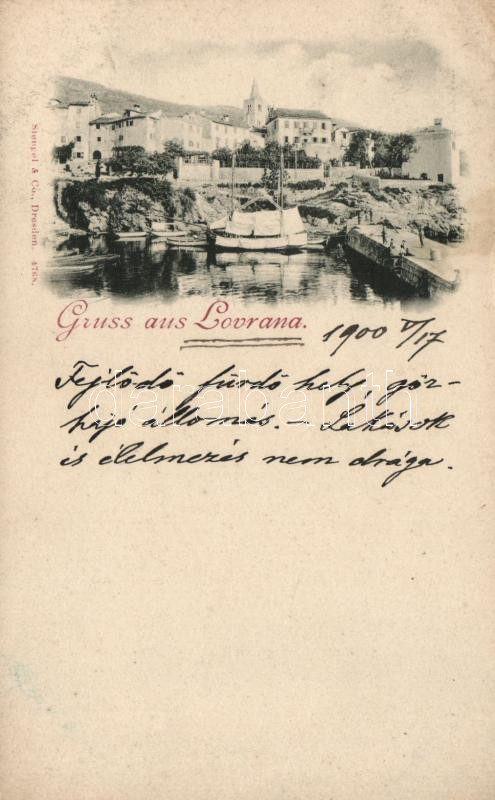 Stengel & Co., Dresden. 4768.
Gruss aus Lovrana.
1900 V/17
Fejlődő fürdő hely, gőz-
hajó állomás. – Lakások
és élelmezés nem drága.
darabanth